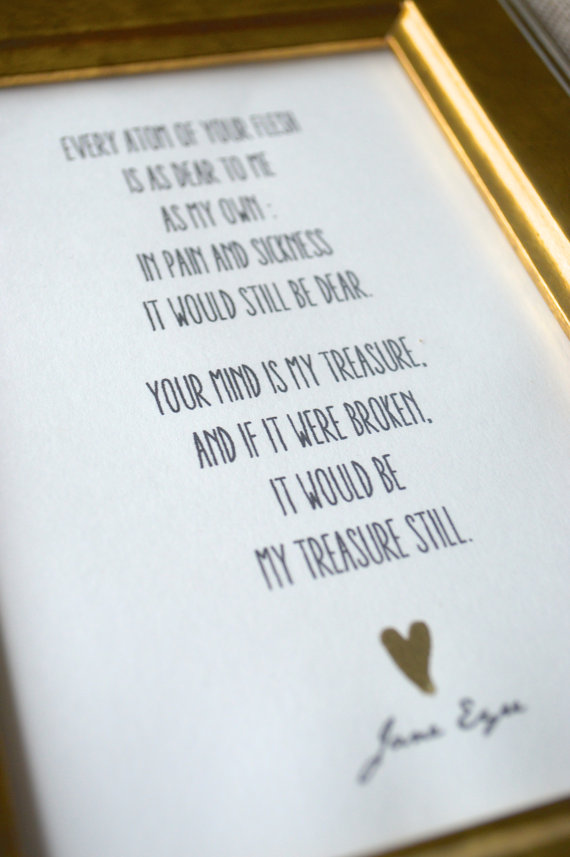 EVERY ATOM OF YOUR FLESH
IS AS DEAR TO ME
AS MY OWN :
IN PAIN AND SICKNESS
IT WOULD STILL BE DEAR.
YOUR MIND IS MY TREASURE,
AND IF IT WERE BROKEN,
IT WOULD BE
MY TREASURE STILL.
Jane Eyre